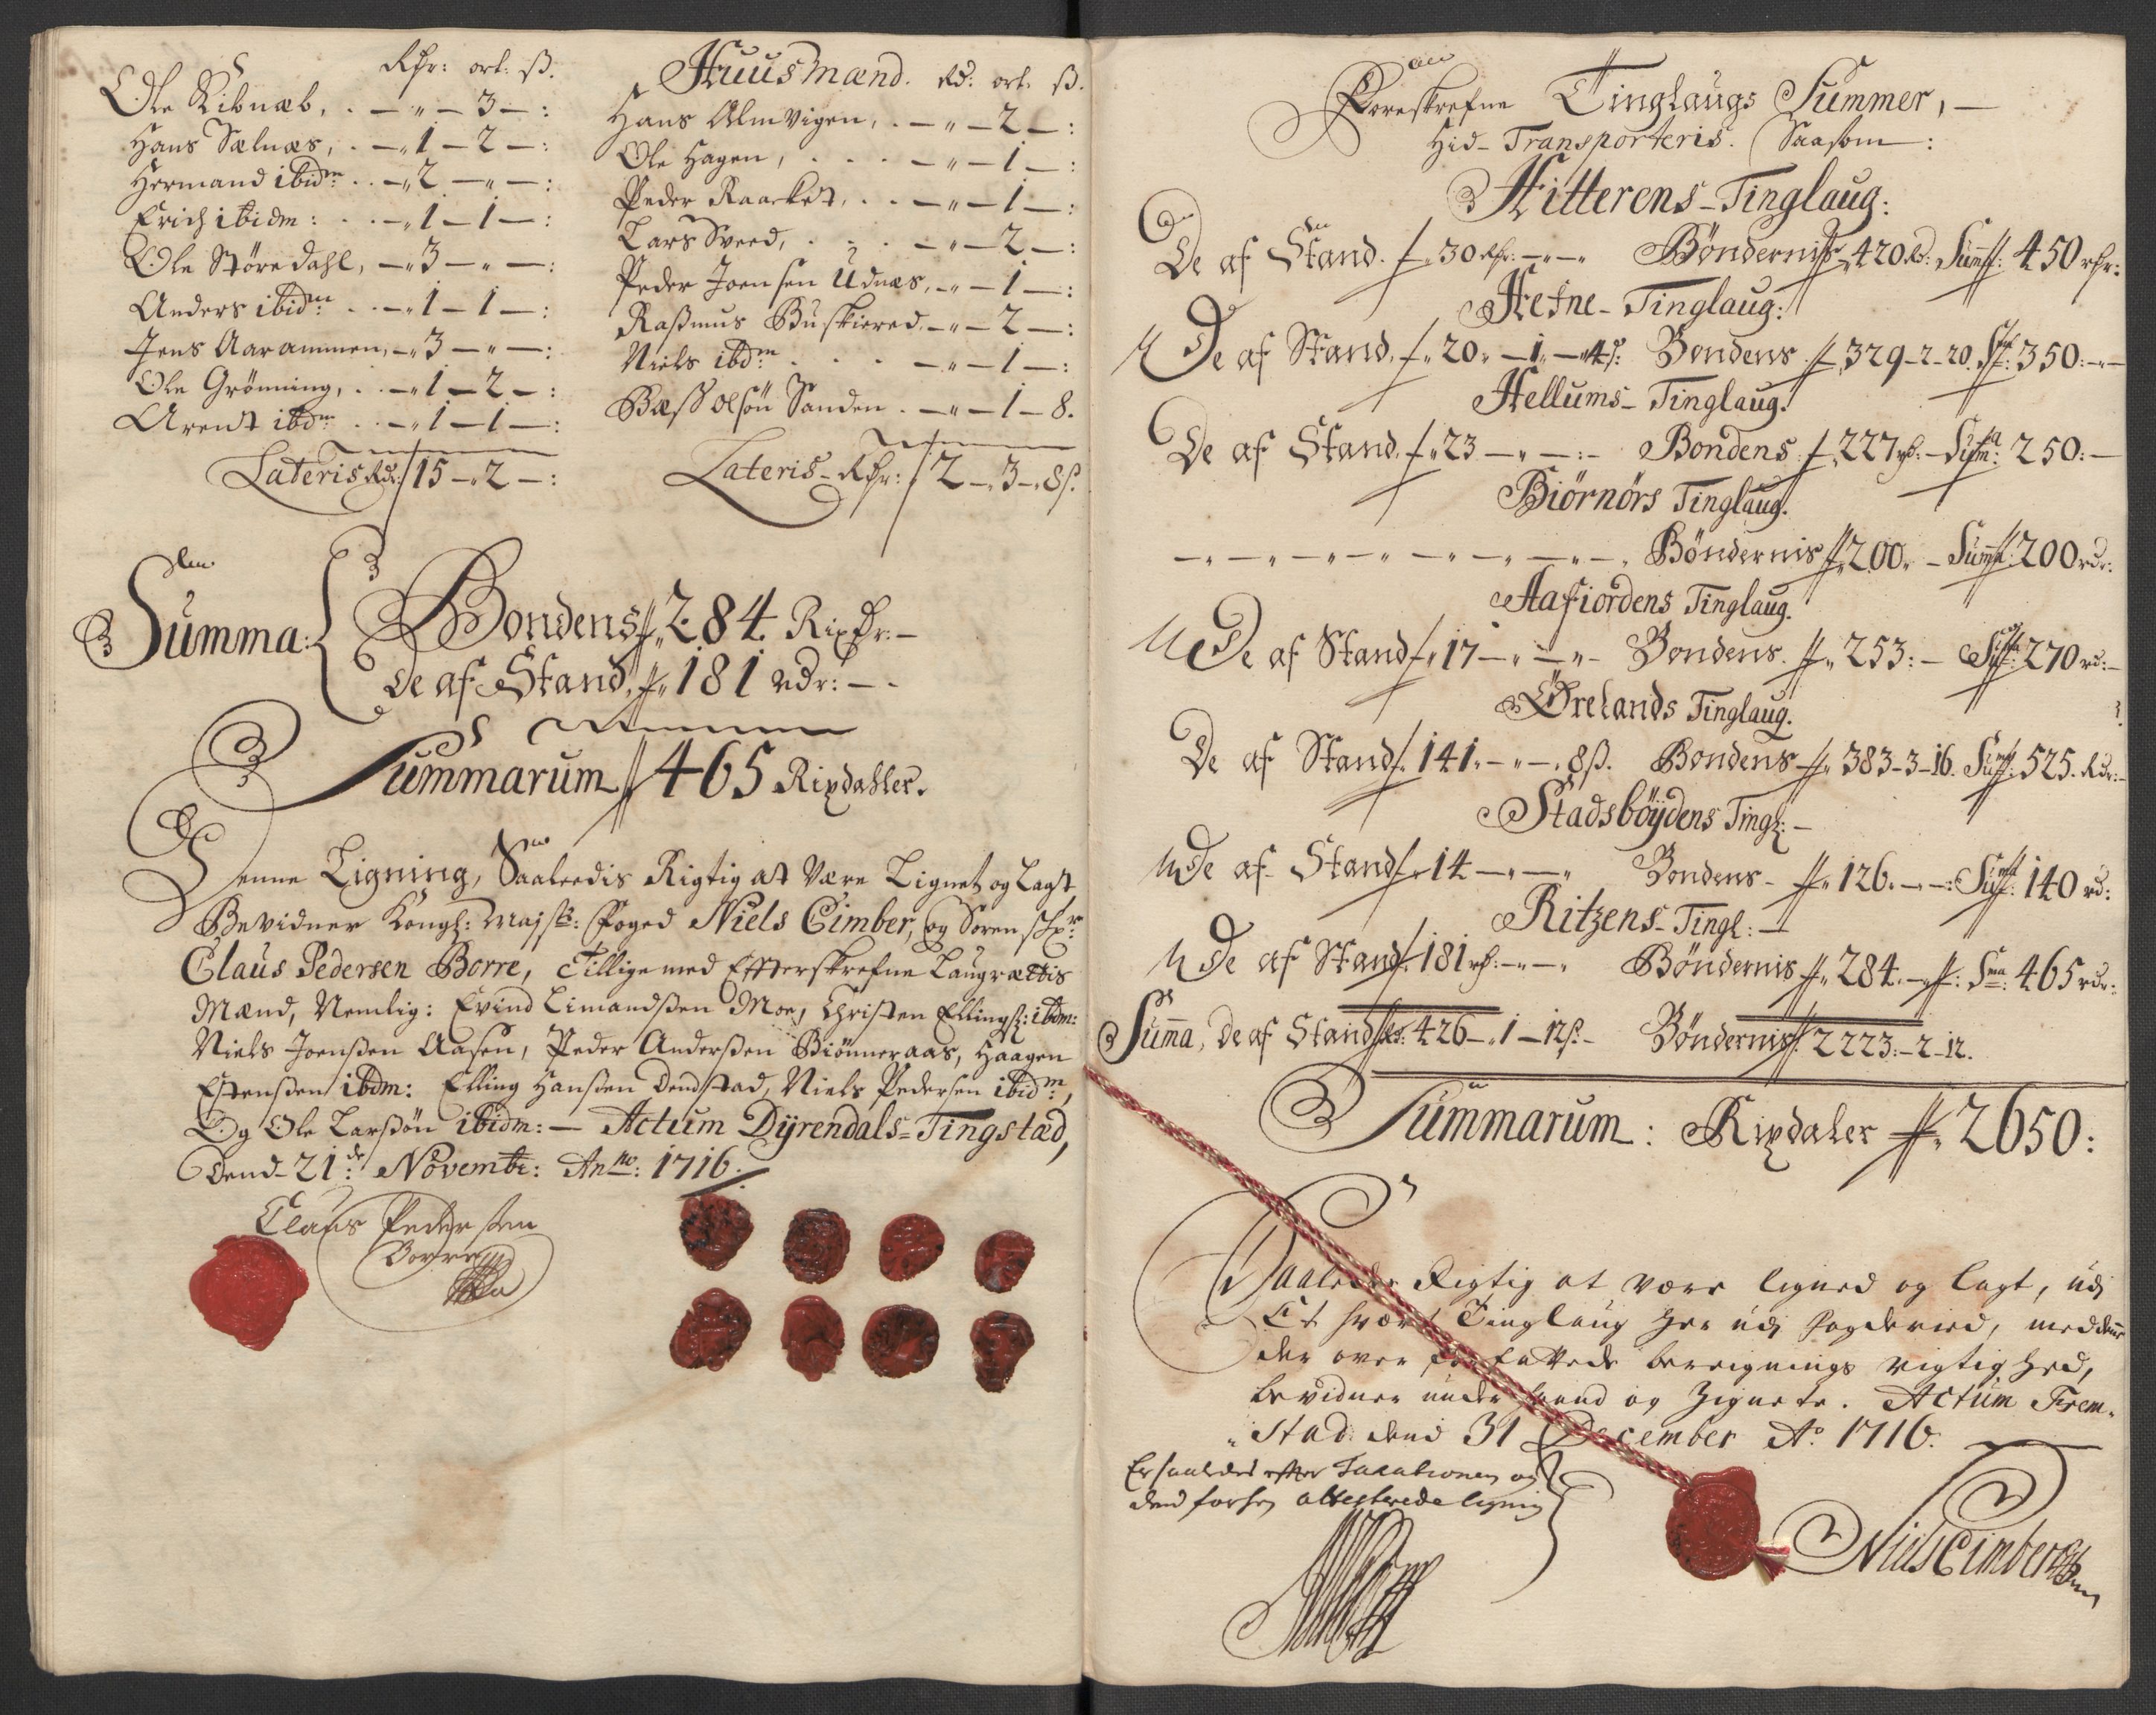 Rdr: ort: ß.
Ole Ribnæb, . — " — 3 — :
Hans Sælnæs, . — " 1 — 2 — :
Hermand ibidm: . . — " 2 — " — :
Erich ibidm: . . — " 1 — 1 — :
Ole Støredahl, — " 3 — " — :
Anders ibidm: . . — " 1 — 1 — :
Jens Aarammen, — " 3 — " — :
Ole Grønning, . . — " 1 — 2 — :
Arent ibdm: . . — " 1 — 1 — :
Lateris Rdr: 15 — " 2 — :
Huusmænd. Rd: ort. ß.
Hans Almvigen, . — " — 2 — :
Ole Hagen, . . . — " — 1 — :
Peder Raasket, . . — " — 1 — :
Lars Sverd, . . . — " — 2 — :
Peder Joensen Udnæs, — " — 1 — :
Rasmus Buskiered — " — 2 — :
Niels ibdm . . . — " — 1 — :
Bæss olsøn Sanden . — " — 1 — 8.
Lateris Rdr: 2 — " 3 — " 8 ß.
Summa: Bondens 284. Rixdr: —
De af Stand, 181 rdr: — -
Summarum 465 Rixdahler.
Denne Ligning, Saaledis Rigtig at Være Lignet og Lagt
Bevidner Kongl: Majsts: Foged Niels Cimber, og Soren skr:
Claus Pedersen Borre, Tillige med Effterskrefne Laugrættis
Mænd, Nemlig: Evind Limandssen Moe, Christen Ellingss: ibdm:
Niels Joenssen Aasen, Peder Anderssen Biønneraas, Haagen
Estenssen ibdm: Elling Hanssen Dendstad, Niels Pedersen ibidm:,
Og Ole Larssøn ibidm: — Actum Dyrendals-Tingstæd,
Dend 21de: Novembr: Anno: 1716.
Claus Pedersen
Borre
Foreskrefne Tinglaugs Summer, —
Hid-Transporteris. Saasom :
Hitterens-Tinglaug:
De af Stand. 30 Rdr: — " — " Bøndernis 420 Rd: Summa: 450 rdr:
Hefne-Tinglaug:
De af Stand, 20 " — 1 " — 4 ß: Bondens 329-2-20. Sum: 350: — " —
Hellums-Tinglaug.
De af Stand, 23 — " — : - Bondens 227 rd: — Suma: 250: —
Biörnörs Tinglaug.
— " — " — " — " — " — " — " — Bøndernis 200. — Summa: 200 rdr:
Aafiordens Tinglaug.
De af Stand 17 — " — " - Bondens. 253: — Suma: 270 rd: —
Ørelands Tinglaug.
De af Stand 141. — " — . 8 ß. Bondens 383-3-16. Suma: 525. Rdr: —
Stadsböydens Tingl: —
De af Stand 14 — " — " Bondens - 126. — " — : Suma: 140 rd:
Ritzens-Tingl: —
De af Stand 181 rd: — " — " Bøndernis 284. — " — : Sma: 465 rdr:
Suma, De af Stand Rd: 426 — " 1 — 12 ß. — Bøndernis 2223: — 2 — 12.
Summarum: Rixdaler 2650:
Saaledes Rigtig at være lignet og lagt, udj
Et hvert Tinglaug her udj fogderied, med denne
der over forfattede bereignings rigtighed,
bevidner under haand og Zignete. Actum Trem-
"stad dend 31 December Ao 1716.
Er saaledes effter Taxationen og
dend forhen attesterede ligning
Niels Cimber